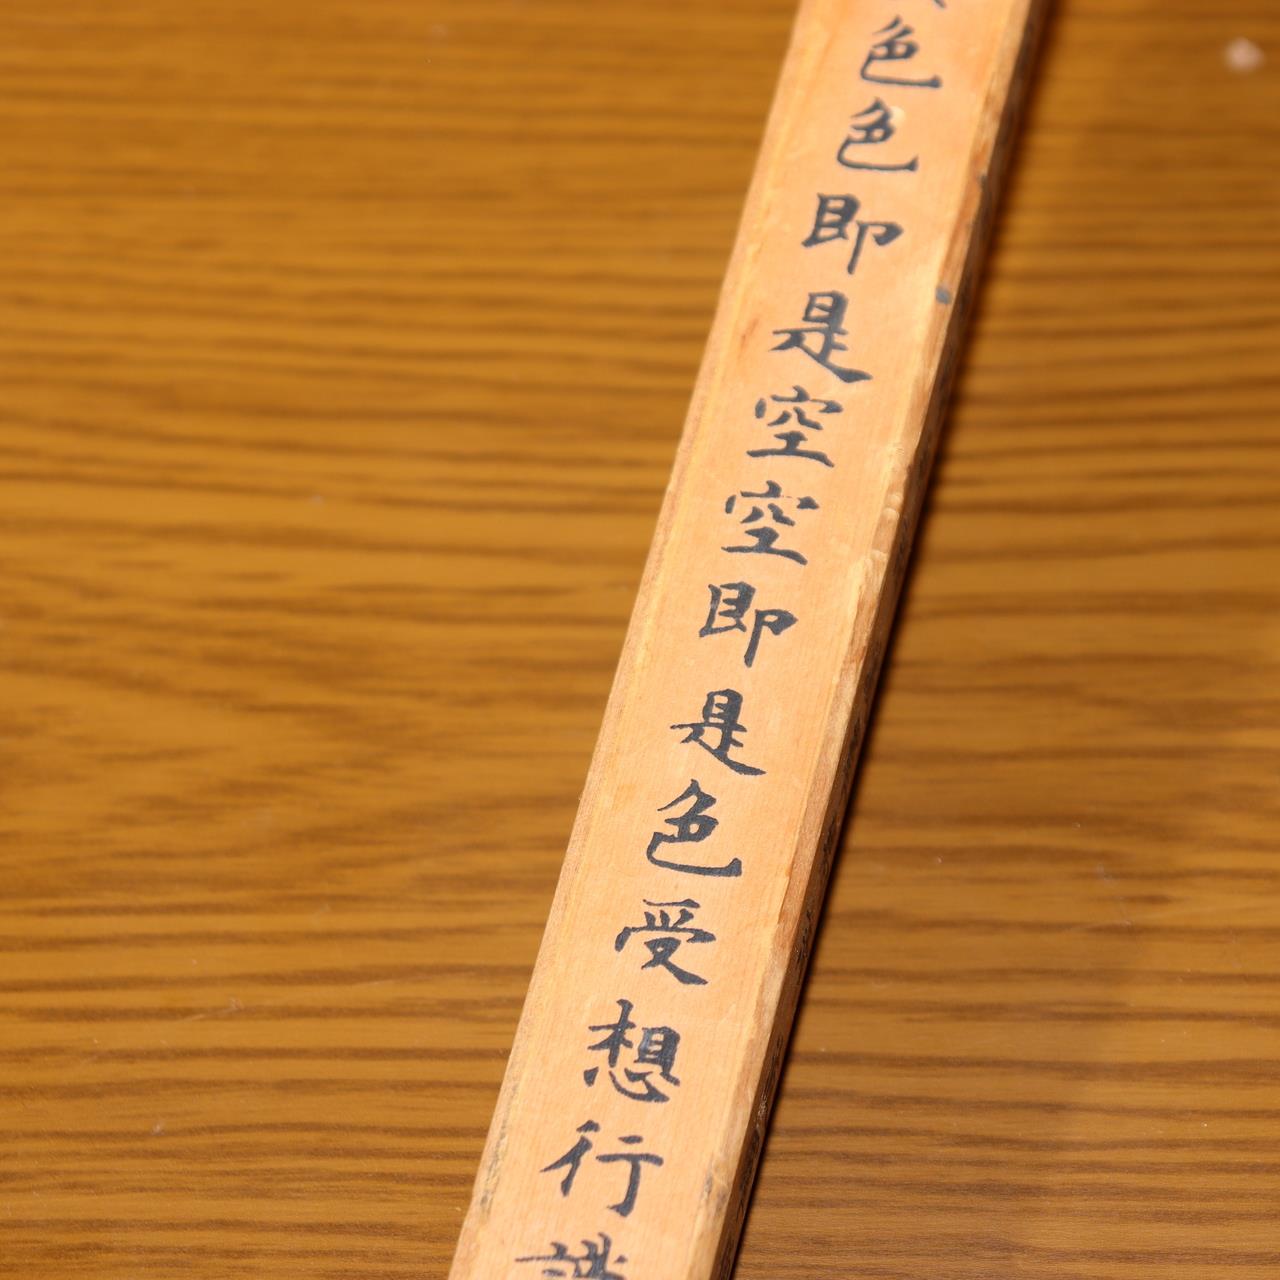 色色即是空空即是色受想行識